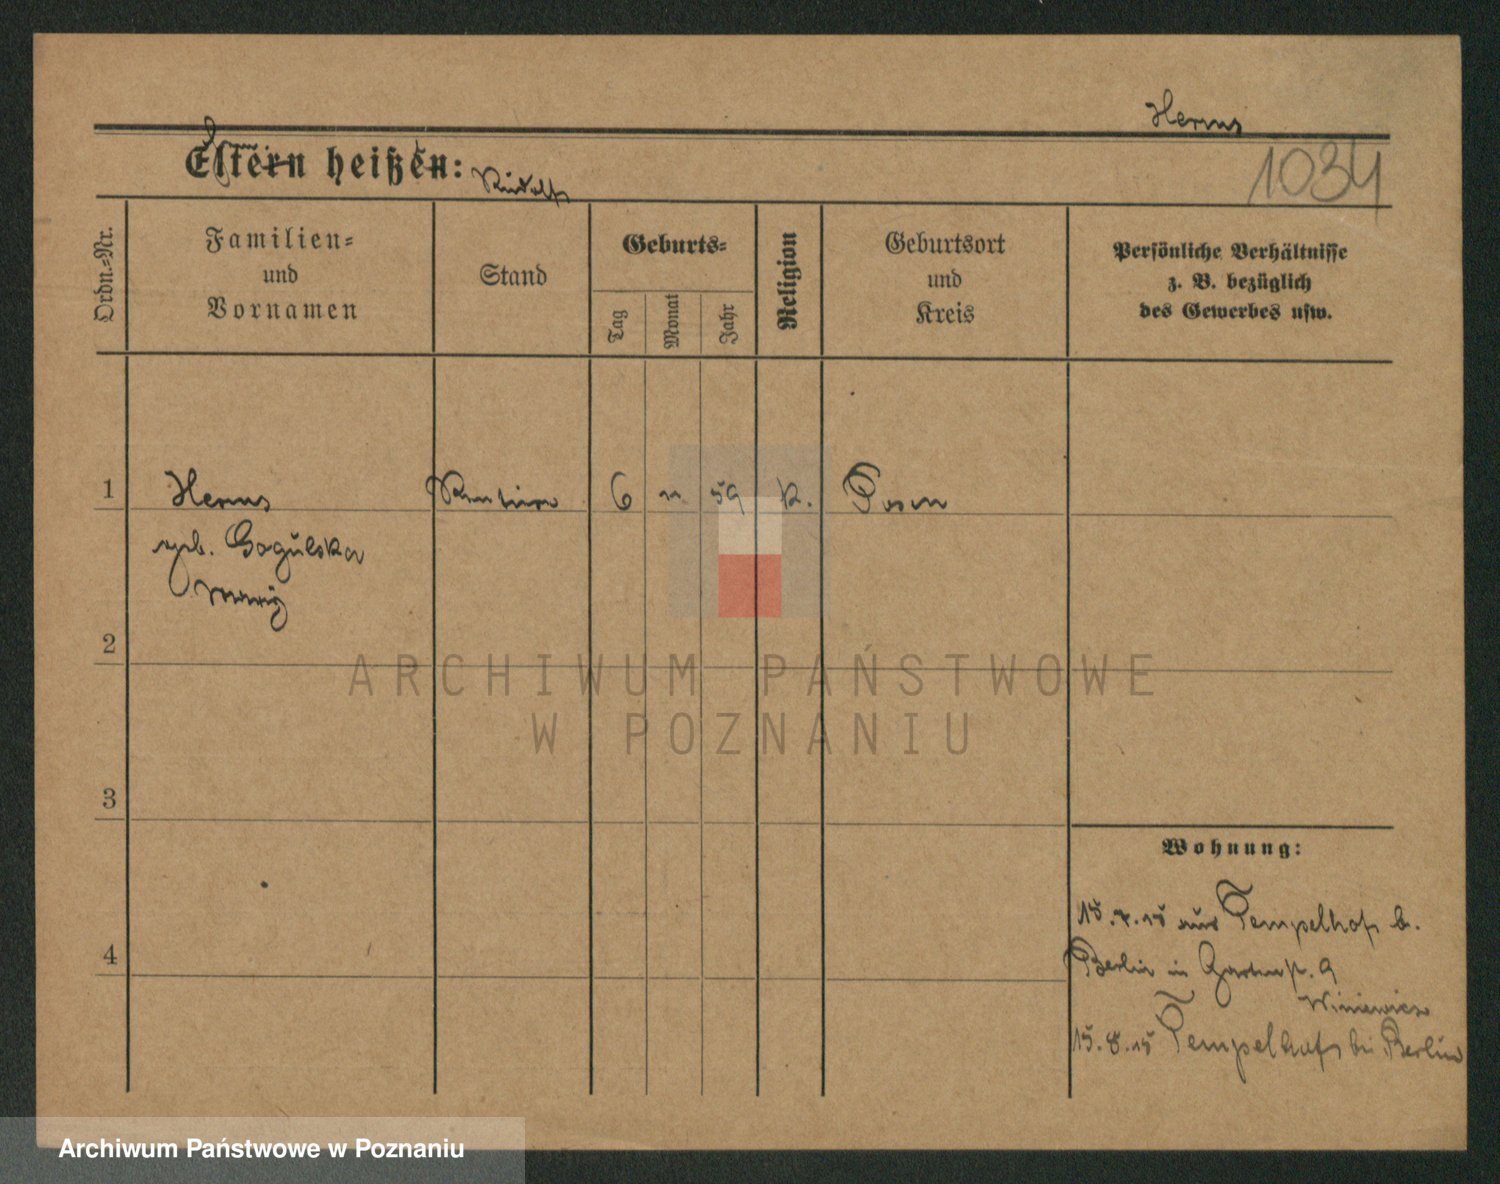 Herms
1034
Eltern heißen:
Rudolf
Ordn.-Nr.
Familien-
und
Vornamen
Stand
Geburts-
Tag
Monat
Jahr
Religion
Geburtsort
und
Kreis
Persönliche Verhältnisse
z. B. bezüglich
des Gewerbes usw.
1
Herms
6
59
K.
Posen
geb. Gogulska
2
3
4
Wohnung:
15.7.15 aus Tempelhof b.
Berlin in Gartenstr. 9
Winiewicz
15.8.15 Tempelhof bei Berlin
ARCHIWUM PAŃSTWOWE
W POZNANIU
Archiwum Państwowe w Poznaniu